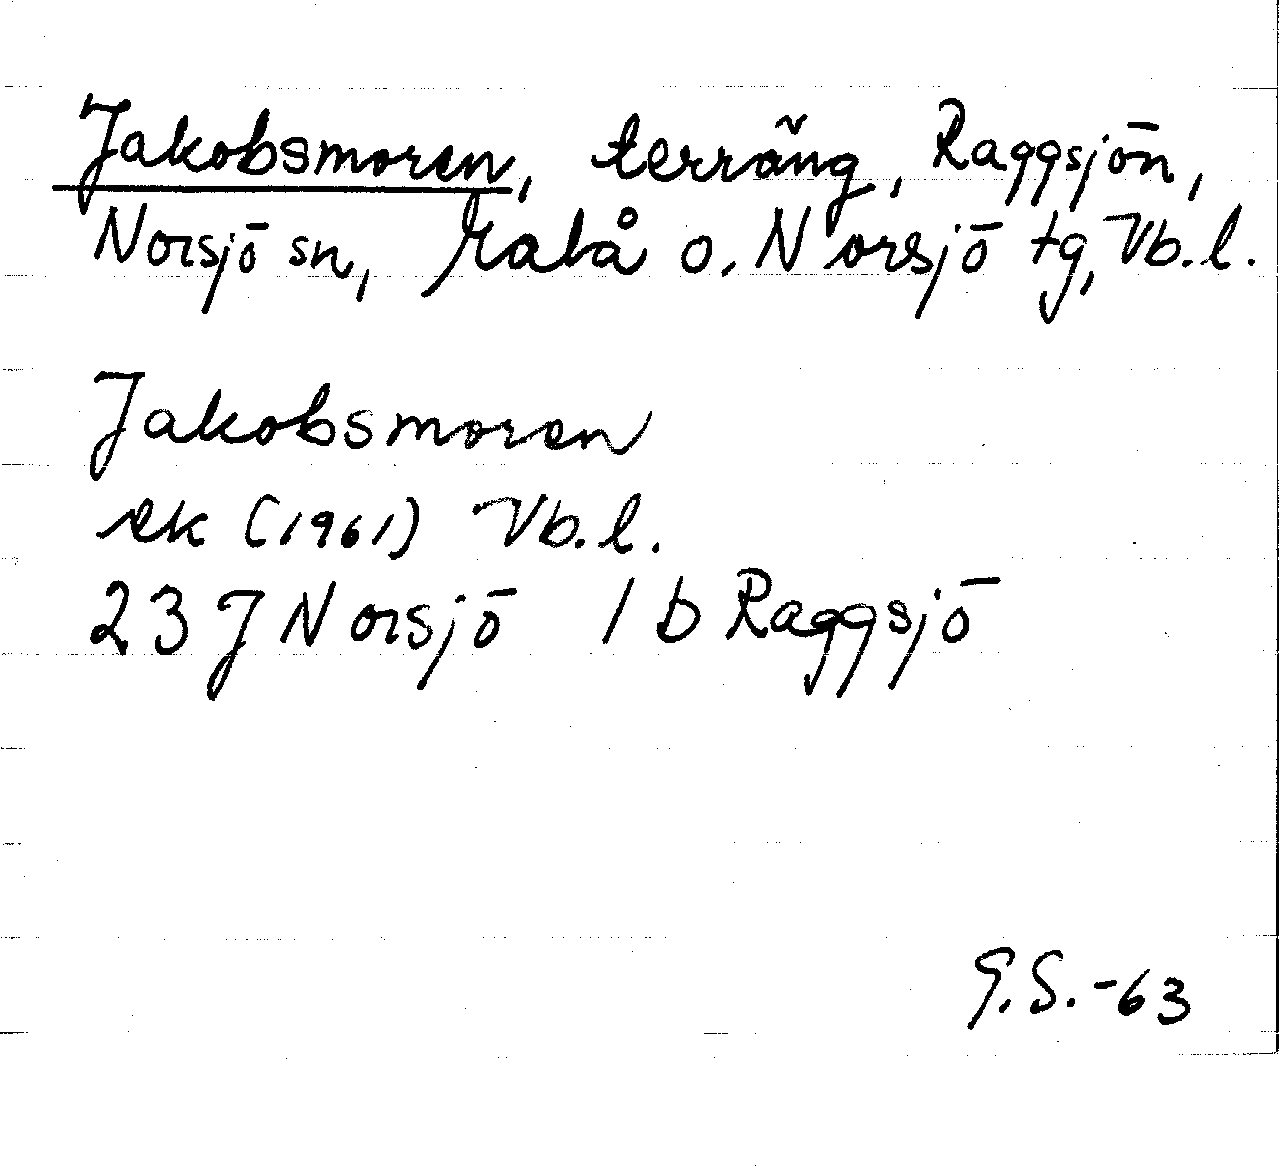 Jakobsmoren, terräng, Raggsjön,
Norsjö sn, Malå o. Norsjö tg, Vb. l.
Jakobsmoren
ek (1961) Vb. l.
23 J Norsjö 1 b Raggsjö
G.S. -63